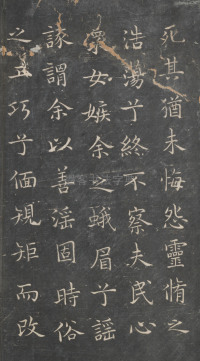 死其猶未悔怨靈脩之
浩蕩兮終不察夫民心
衆女嫉余之蛾眉兮謠
諑謂余以善淫固時俗
之工巧兮偭規矩而改